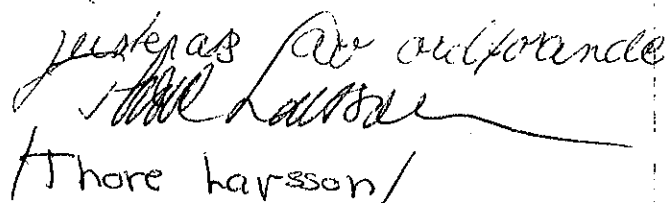 justeras av ordförande
Thore Larsson
/Thore Larsson/